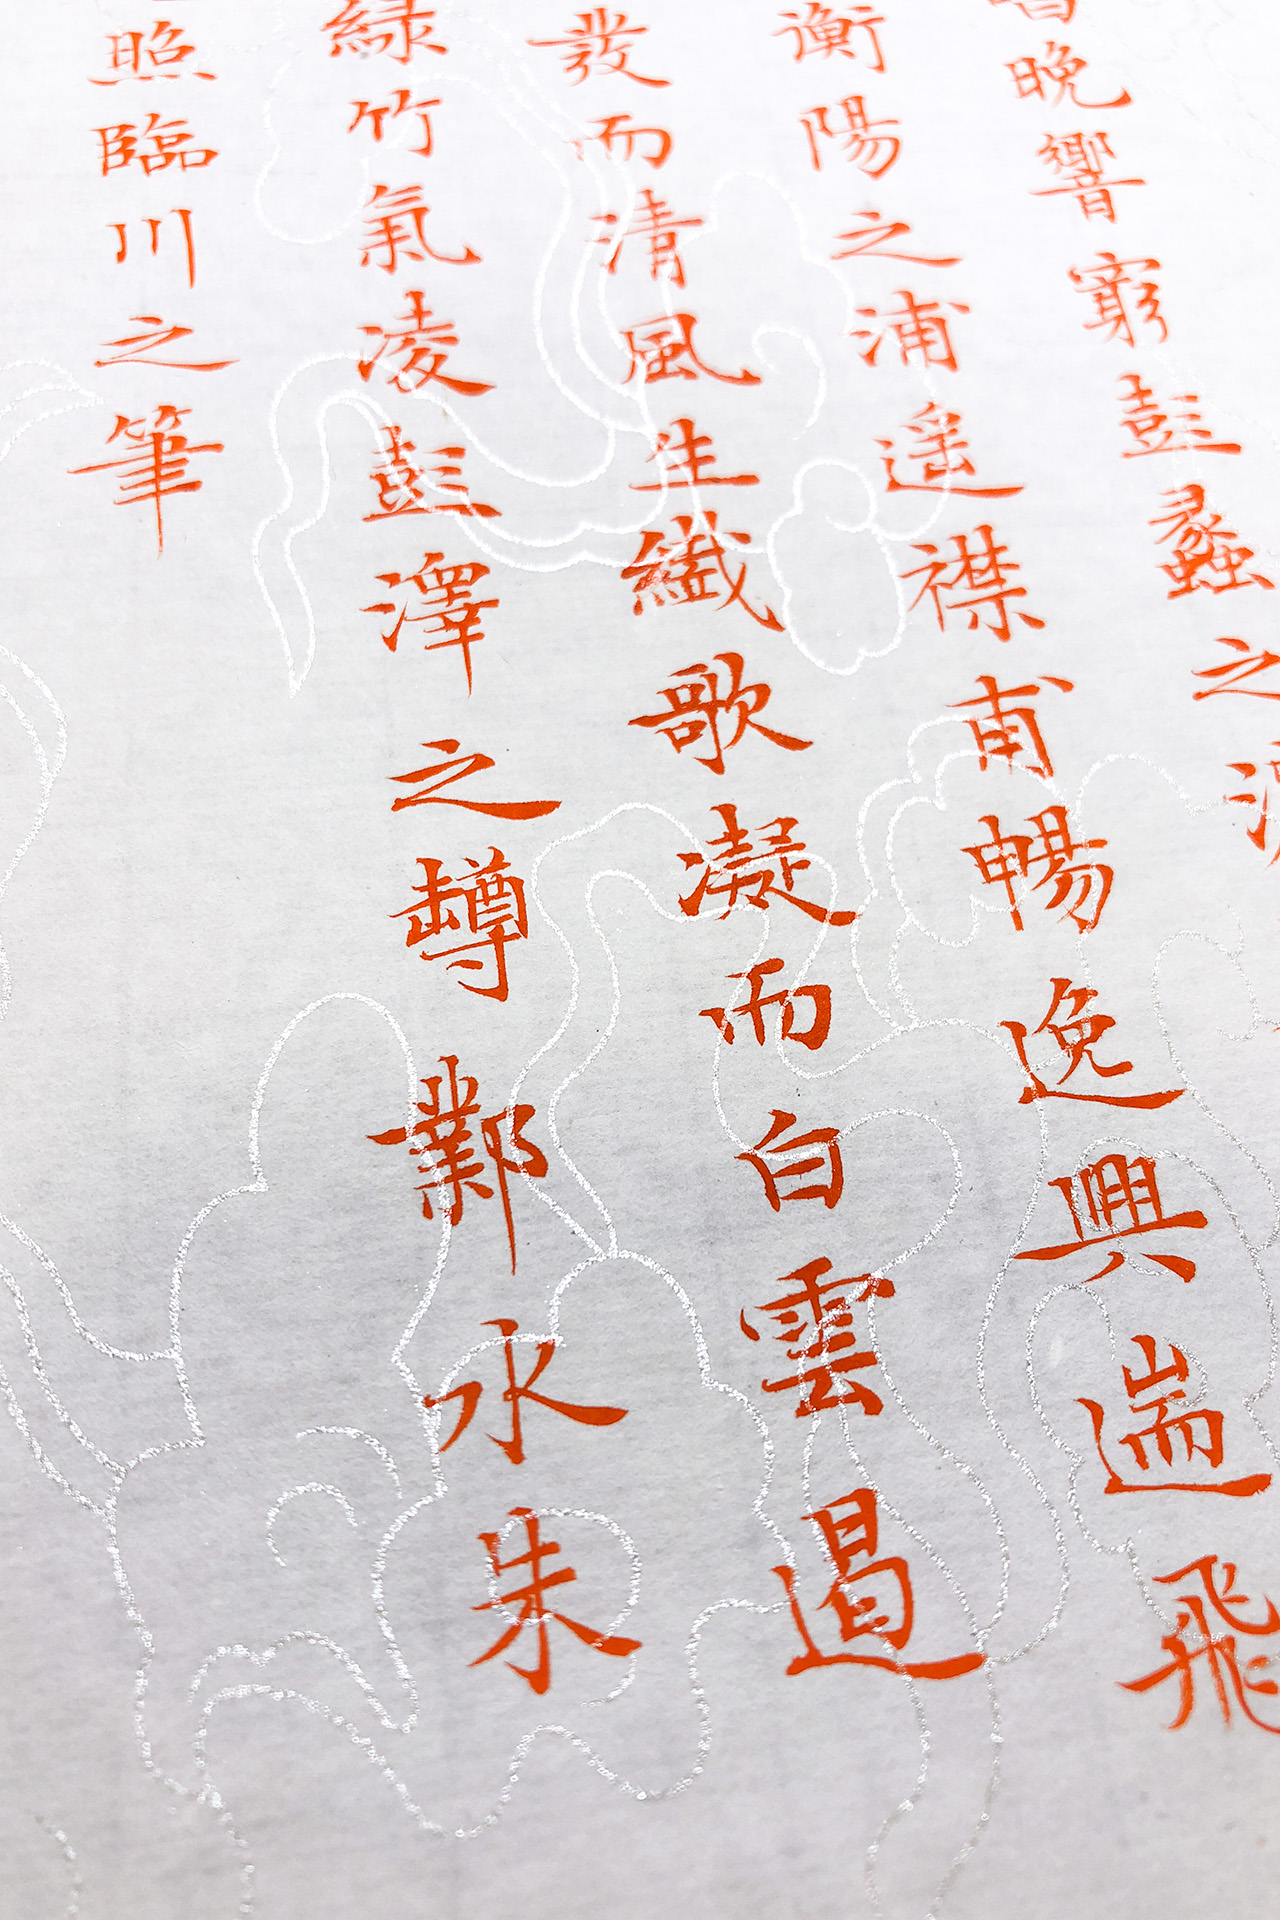 晚響窮彭蠡之濱
衡陽之浦遥襟甫暢逸興遄飛
發而清風生纖歌凝而白雲遏
綠竹氣凌彭澤之罇鄴水朱
照臨川之筆